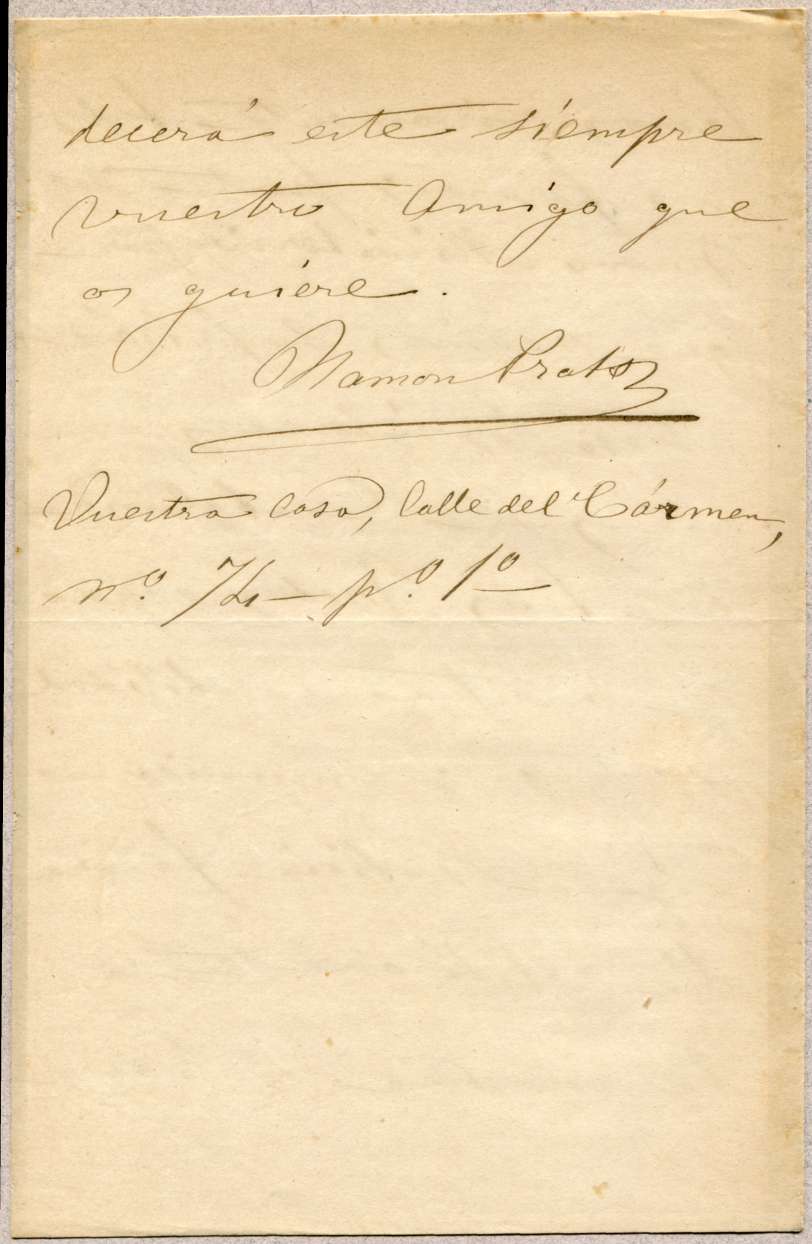 decerá este siempre
vuestro amigo que
os quiere.
Ramon Prats
Vuestra casa, Calle del Cármen,
nº. 74 – pº. 1º